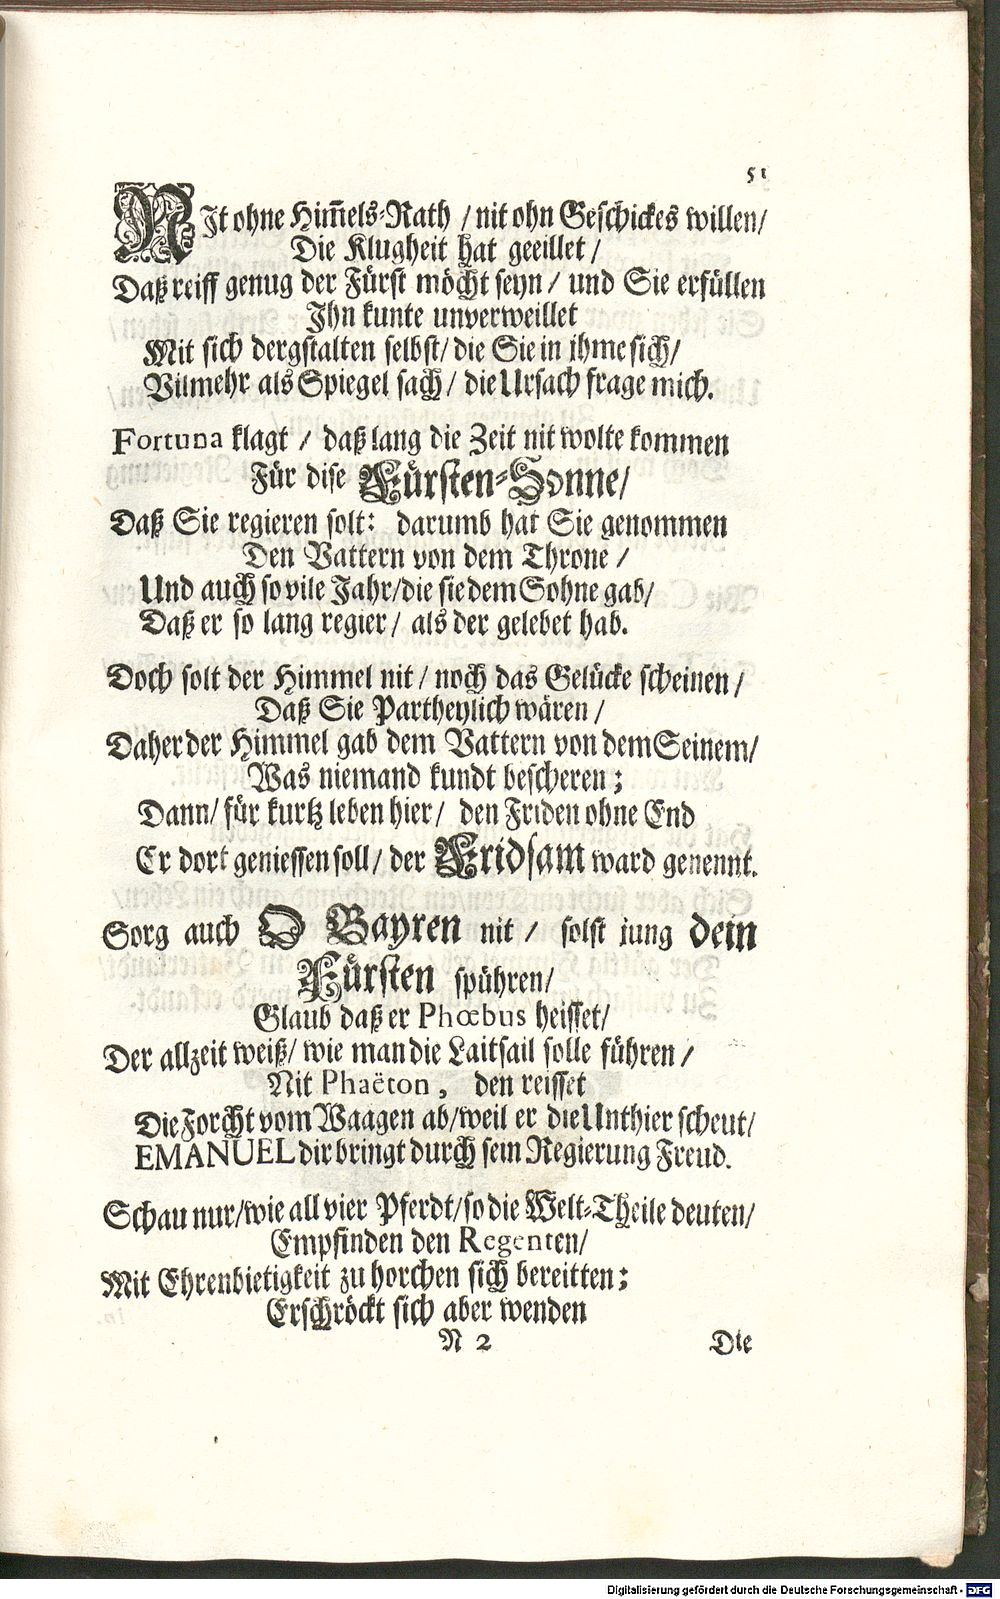 51
NIt ohne Him̃els-Rath / nit ohn Geschickes willen/
Die Klugheit hat geeillet /
Daß reiff genug der Fürst möcht seyn / und Sie erfüllen
Ihn kunte unverweillet
Mit sich dergstalten selbst/ die Sie in ihme sich/
Vilmehr als Spiegel sach/ die Ursach frage mich.
Fortuna klagt / daß lang die Zeit nit wolte kommen
Für dise Fürsten-Sonne/
Daß Sie regieren solt: darumb hat Sie genommen
Den Vattern von dem Throne /
Und auch so vile Jahr/die sie dem Sohne gab/
Daß er so lang regier/ als der gelebet hab.
Doch solt der Himmel nit / noch das Gelücke scheinen /
Daß Sie Partheylich wären /
Daher der Himmel gab dem Vattern von dem Seinem/
Was niemand kundt bescheren ;
Dann/ für kurtz leben hier/ den Friden ohne End
Er dort geniessen soll/ der Fridsam ward genennt.
Sorg auch O Bayren nit / solst jung dein
Fürsten spühren/
Glaub daß er Phœbus heisset/
Der allzeit weiß/ wie man die Laitsail solle führen /
Nit Phaëton, den reisset
Die Forcht vom Waagen ab/weil er die Unthier scheut/
EMANUEL dir bringt durch sein Regierung Freud.
Schau nur/wie all vier Pferdt/so die Welt-Theile deuten/
Empfinden den Regenten/
Mit Ehrenbietigkeit zu horchen sich bereitten ;
Erschröckt sich aber wenden
N 2 Die
Digitalisierung gefördert durch die Deutsche Forschungsgemeinschaft - DFG